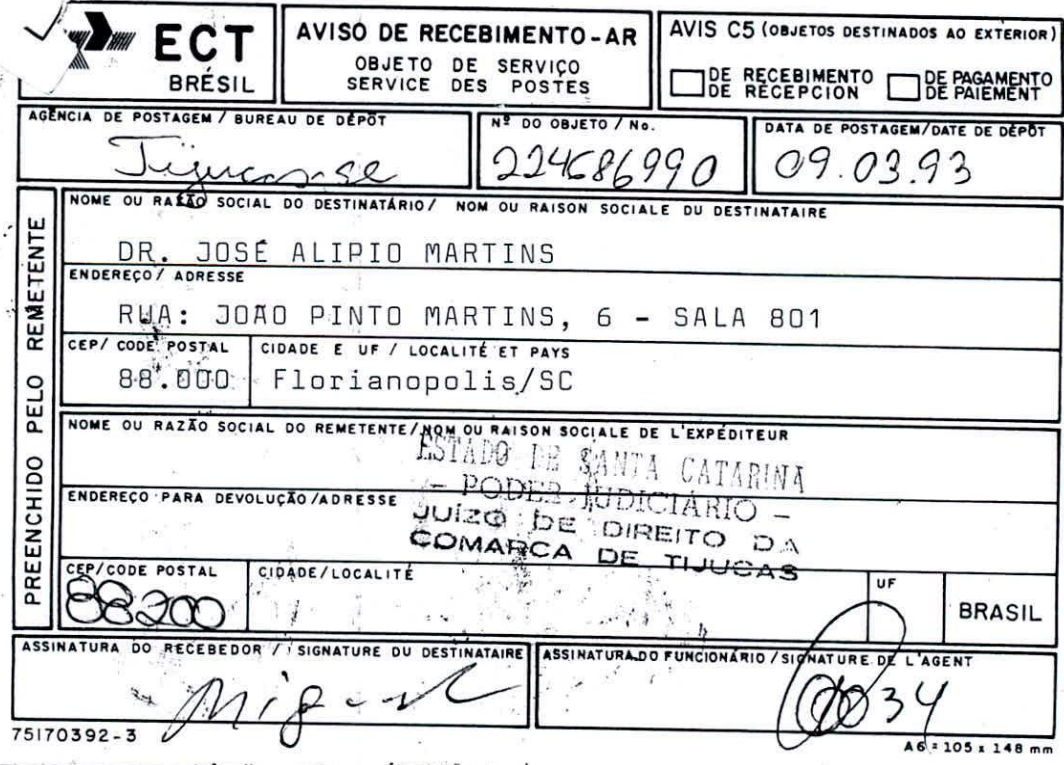 ECT
BRÉSIL
AVISO DE RECEBIMENTO-AR
OBJETO DE SERVIÇO
SERVICE DES POSTES
AVIS C5 (OBJETOS DESTINADOS AO EXTERIOR)
DE RECEBIMENTO
DE RÉCEPCION
DE PAGAMENTO
DE PAIEMENT
AGÊNCIA DE POSTAGEM / BUREAU DE DÉPÔT
Tijucas-se
Nº DO OBJETO / No.
224686990
DATA DE POSTAGEM/DATE DE DÉPÔT
09.03.93
PREENCHIDO PELO REMETENTE
NOME OU RAZÃO SOCIAL DO DESTINATÁRIO/ NOM OU RAISON SOCIALE DU DESTINATAIRE
DR. JOSÉ ALIPIO MARTINS
ENDEREÇO/ ADRESSE
RUA: JOÃO PINTO MARTINS, 6 - SALA 801
CEP/ CODE POSTAL
88.000
CIDADE E UF / LOCALITÉ ET PAYS
Florianopolis/SC
NOME OU RAZÃO SOCIAL DO REMETENTE/NOM OU RAISON SOCIALE DE L'EXPÉDITEUR
ESTADO DE SANTA CATARINA
- PODER JUDICIÁRIO -
ENDEREÇO PARA DEVOLUÇÃO/ADRESSE
JUÍZO DE DIREITO DA
COMARCA DE TIJUCAS
CEP/CODE POSTAL
88200
CIDADE/LOCALITÉ
UF
BRASIL
ASSINATURA DO RECEBEDOR / SIGNATURE DU DESTINATAIRE
ASSINATURA DO FUNCIONÁRIO / SIGNATURE DE L'AGENT
34
75170392-3
A6 = 105 x 148 mm